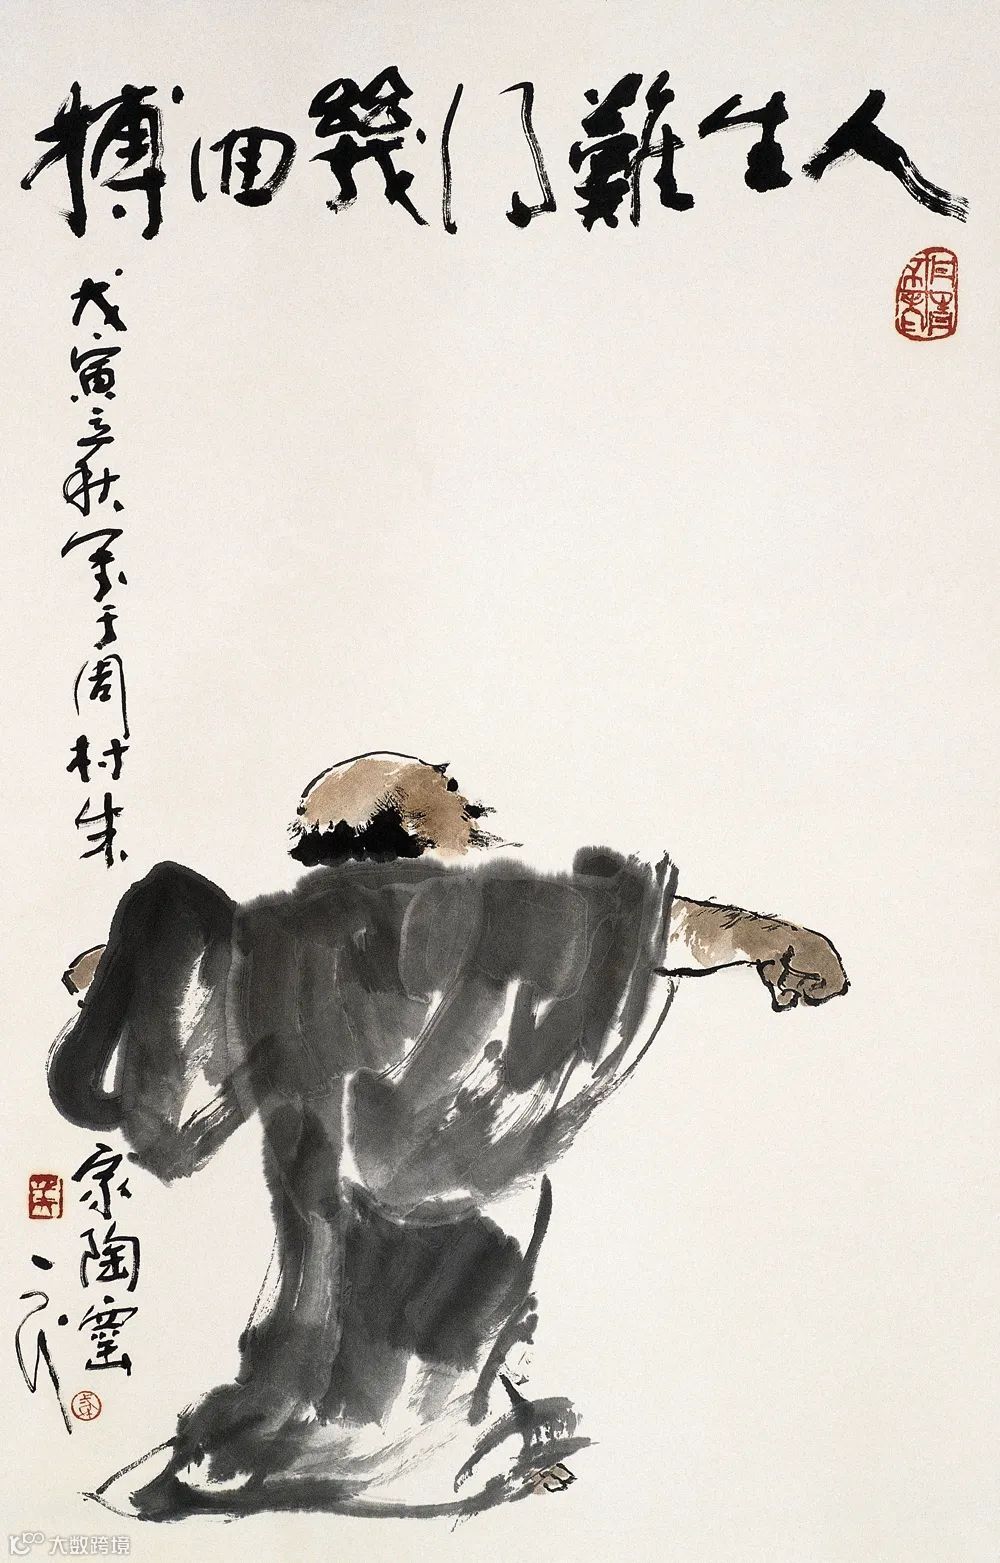 人生難得幾回搏
戊寅立秋寫于周村朱
家陶窑
大数跨境